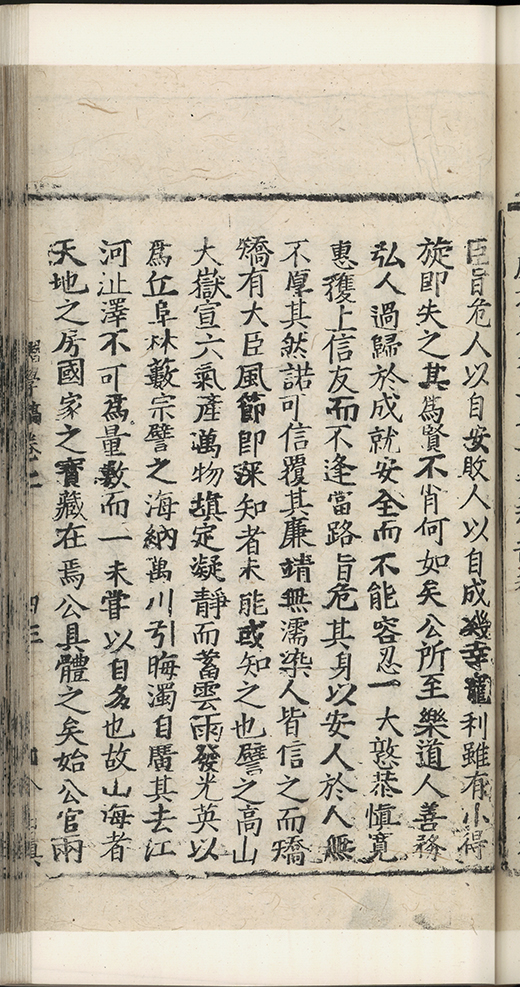 臣旨危人以自安敗人以自成幾幸寵利雖有小得
旋即失之其為賢不肖何如矣公所至樂道人善務
弘人過歸於成就安全而不能容忍一大憝恭慎寬
惠獲上信友而不逢當路旨危其身以安人於人無
不厚其然諾可信覆其廉靖無濡染人皆信之而矯
矯有大臣風節即深知者未能或知之也譬之高山
大嶽宣六氣產萬物填定凝靜而蓄雲雨發光英以
為丘阜林藪宗譬之海納萬川引晦濁自廣其去江
河沚澤不可為量數而一未嘗以自多也故山海者
天地之房國家之寶藏在焉公具體之矣始公官兩
稿卷十二
四三